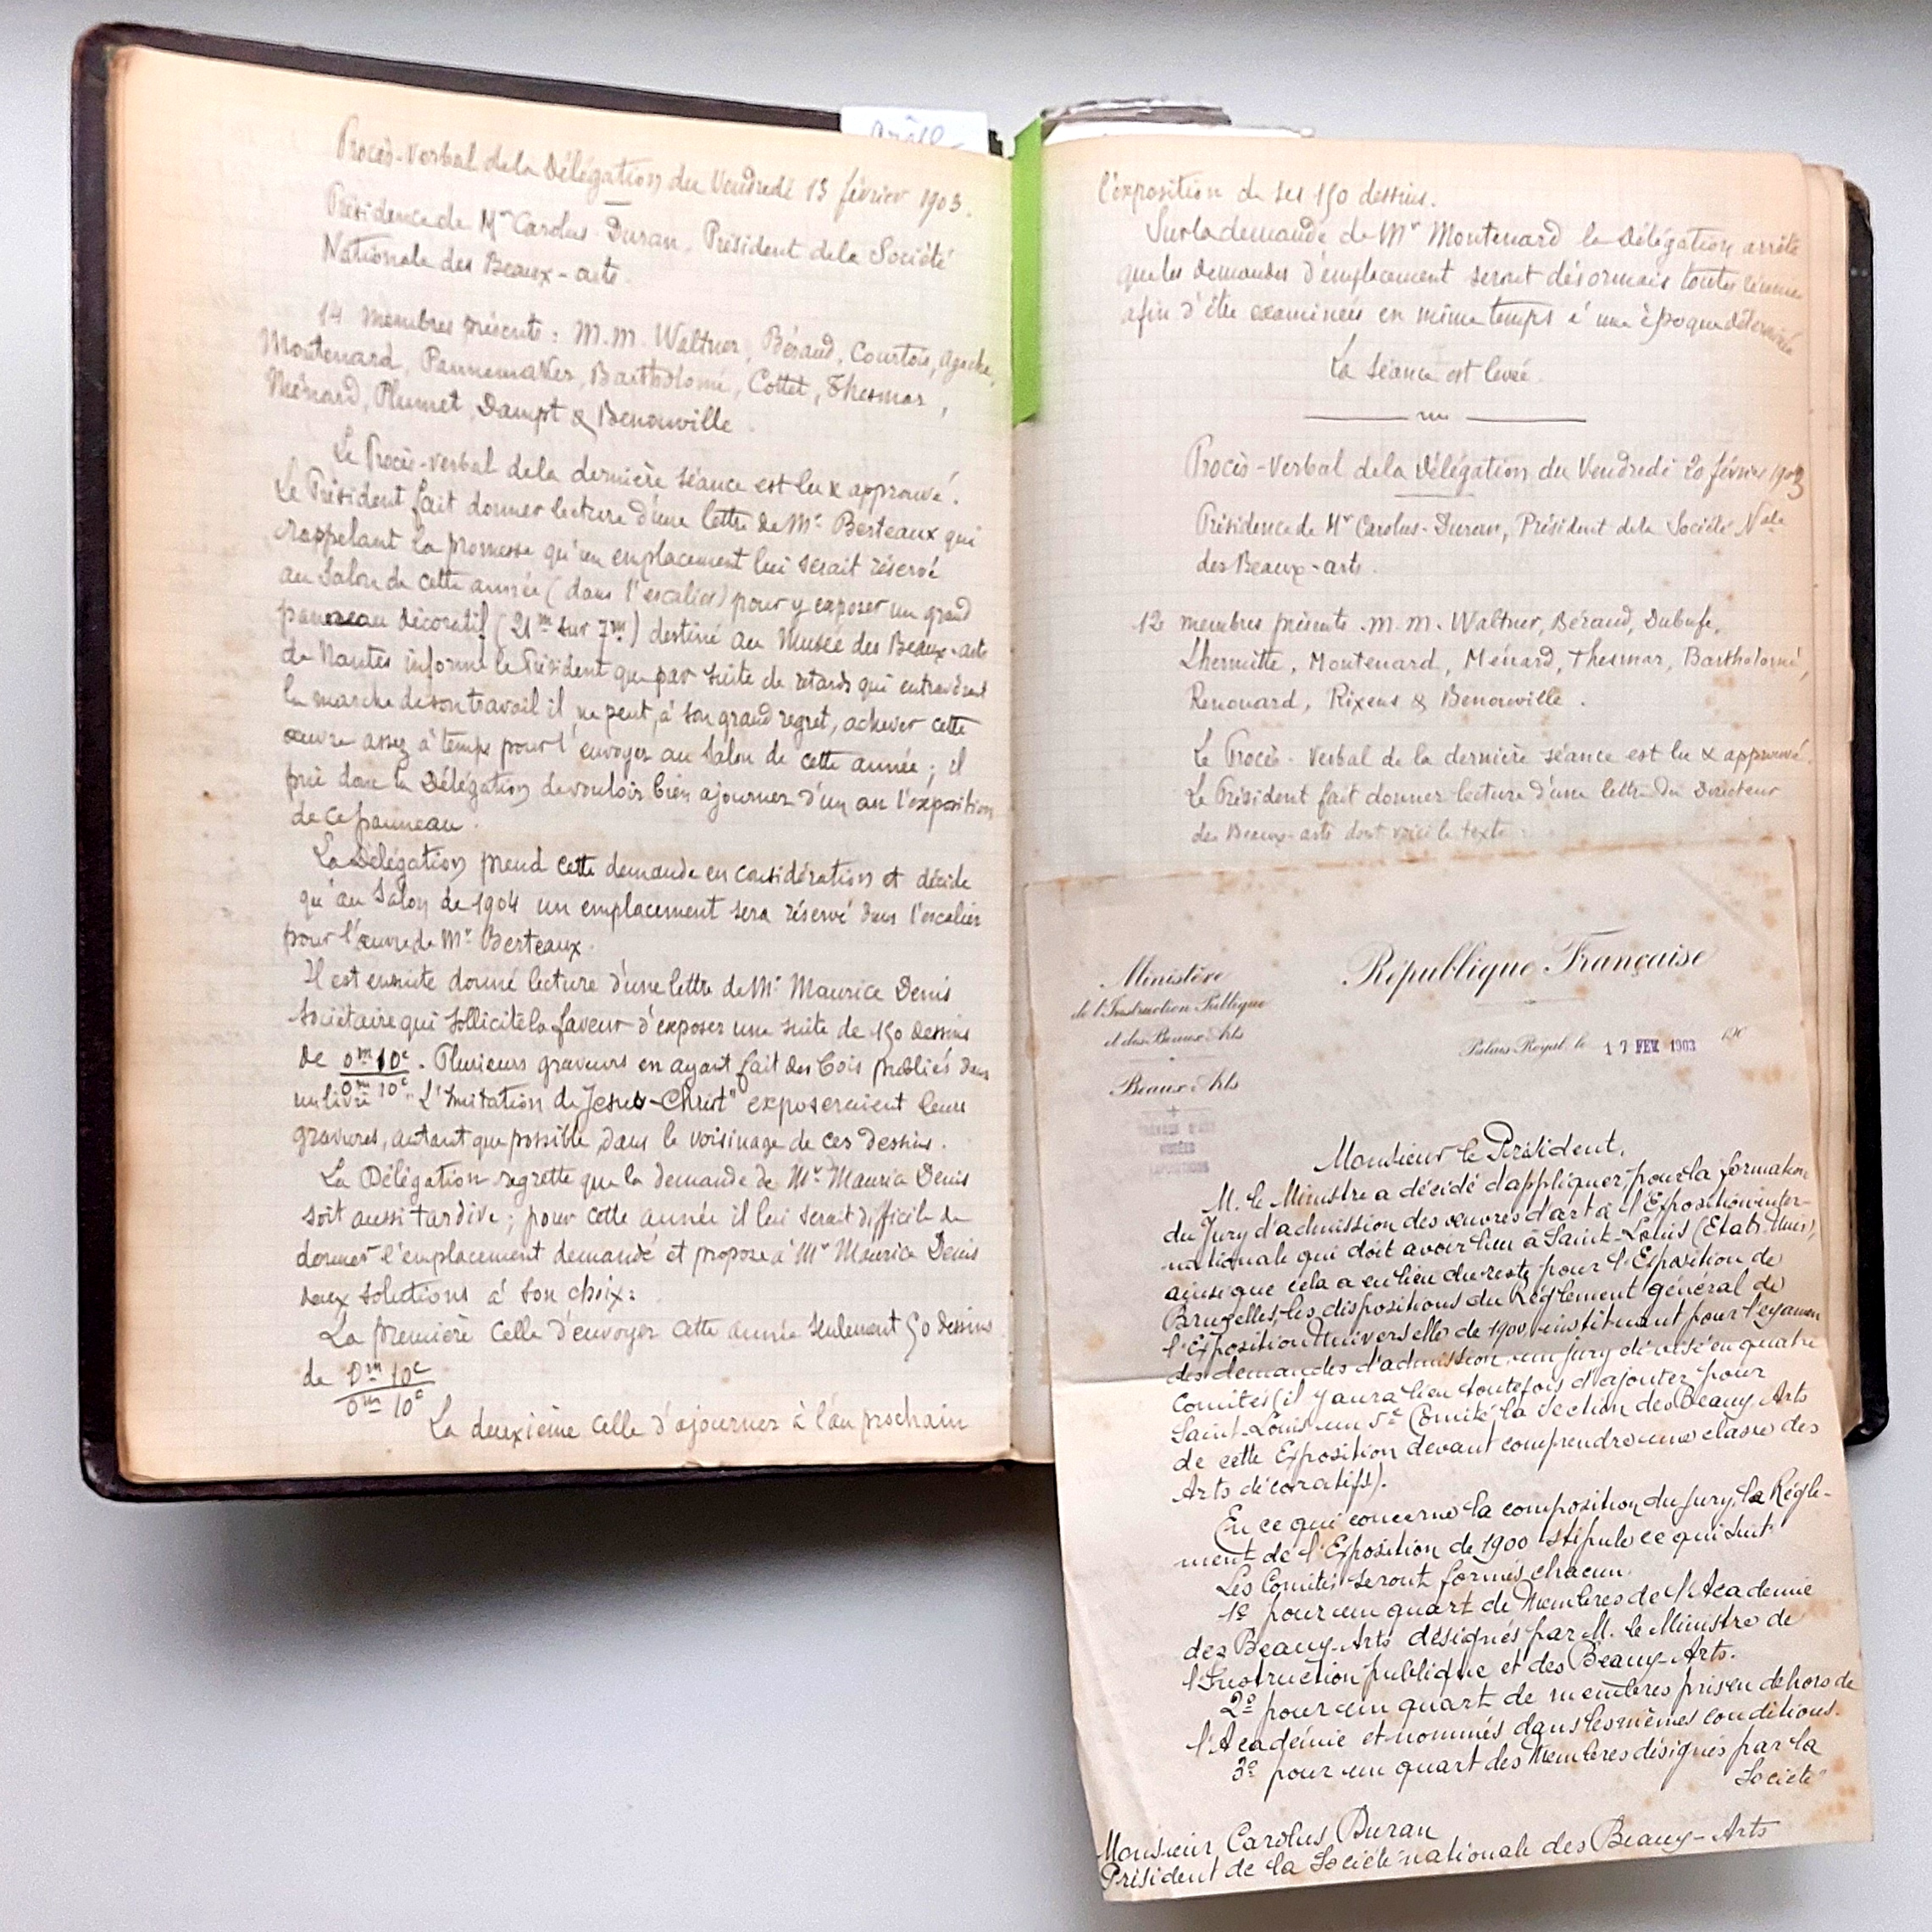 Procès-Verbal de la Délégation du Vendredi 13 février 1903.
Présidence de Mr Carolus-Duran, Président de la Société
Nationale des Beaux-arts.
14 membres présents : M.M. Waltner, Béraud, Courtois, Agache,
Montenard, Pannemaker, Bartholomé, Cottet, Thesmar,
Ménard, Plumet, Dampt & Benouville.
Le Procès-verbal de la dernière séance est lu & approuvé.
Le Président fait donner lecture d'une lettre de Mr Berteaux qui
rappelant la promesse qu'un emplacement lui serait réservé
au Salon de cette année (dans l'escalier) pour y exposer un grand
panneau décoratif (21m sur 7m) destiné au Musée des Beaux-arts
de Nantes informe le Président que par suite de retards qui entravèrent
la marche de son travail il ne peut, à son grand regret, achever cette
œuvre assez à temps pour l'envoyer au Salon de cette année ; il
prie donc la Délégation de vouloir bien ajourner d'un an l'exposition
de ce panneau.
La Délégation prend cette demande en considération et décide
qu'au Salon de 1904 un emplacement sera réservé dans l'escalier
pour l'œuvre de Mr Berteaux.
Il est ensuite donné lecture d'une lettre de Mr Maurice Denis
Sociétaire qui sollicite la faveur d'exposer une suite de 150 dessins
de 0m 10c / 0m 10c. Plusieurs graveurs en ayant fait des bois publiés dans
un livre "L'Imitation de Jesus-Christ" exposeraient leurs
gravures, autant que possible dans le voisinage de ces dessins.
La Délégation regrette que la demande de Mr Maurice Denis
soit aussi tardive ; pour cette année il lui serait difficile de
donner l'emplacement demandé et propose à Mr Maurice Denis
deux solutions à son choix :
La première celle d'envoyer cette année seulement 50 dessins
de 0m 10c / 0m 10c
La deuxième celle d'ajourner à l'an prochain
l'exposition de ses 150 dessins.
Sur la demande de Mr Montenard la Délégation arrête
que les demandes d'emplacement seront désormais toutes
afin d'être examinées en même temps à une époque déterminée
La séance est levée.
Procès-Verbal de la Délégation du Vendredi 20 février 1903
Présidence de Mr Carolus-Duran, Président de la Société Nale
des Beaux-arts.
12 membres présents. M.M. Waltner, Béraud, Dubufe,
Lhermitte, Montenard, Ménard, Thesmar, Bartholomé,
Renouard, Rixens & Benouville.
Le Procès-Verbal de la dernière séance est lu & approuvé.
Le Président fait donner lecture d'une lettre du Directeur
des Beaux-arts dont voici le texte :
République Française
Ministère
de l'Instruction Publique
et des Beaux-Arts
Beaux-Arts
Palais-Royal, le 17 FEV. 1903 190
TRAVAUX D'ART
MUSÉES
EXPOSITIONS
Monsieur le Président,
M. le Ministre a décidé d'appliquer, pour la formation
du Jury d'admission des œuvres d'art à l'Exposition inter-
nationale qui doit avoir lieu à Saint-Louis (Etats-Unis),
ainsi que cela a eu lieu du reste pour l'Exposition de
Bruxelles, les dispositions du Règlement général de
l'Exposition Universelle de 1900, instituant pour l'examen
des demandes d'admission, un jury divisé en quatre
Comités (il y aura lieu toutefois d'ajouter pour
Saint-Louis un 5e Comité, la Section des Beaux-Arts
de cette Exposition devant comprendre une classe des
Arts décoratifs).
En ce qui concerne la composition du Jury, le Règle-
ment de l'Exposition de 1900 stipule ce qui suit
Les Comités seront formés chacun.
1o pour un quart de Membres de l'Académie
des Beaux-Arts désignés par M. le Ministre de
l'Instruction publique et des Beaux-Arts.
2o pour un quart de membres pris en dehors de
l'Académie et nommés dans les mêmes conditions.
3o pour un quart des Membres désignés par la
Société
Monsieur Carolus Duran
Président de la Société nationale des Beaux-Arts